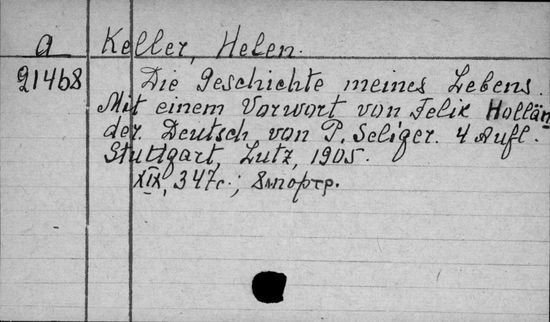 a Keller, Helen.
91468 Die Geschichte meines Lebens.
Mit einem Vorwort von Felix Hollän
der. Deutsch von P. Seliger. 4 Aufl.
Stuttgart, Lutz, 1905.
XIX, 347с.; 8л портр.